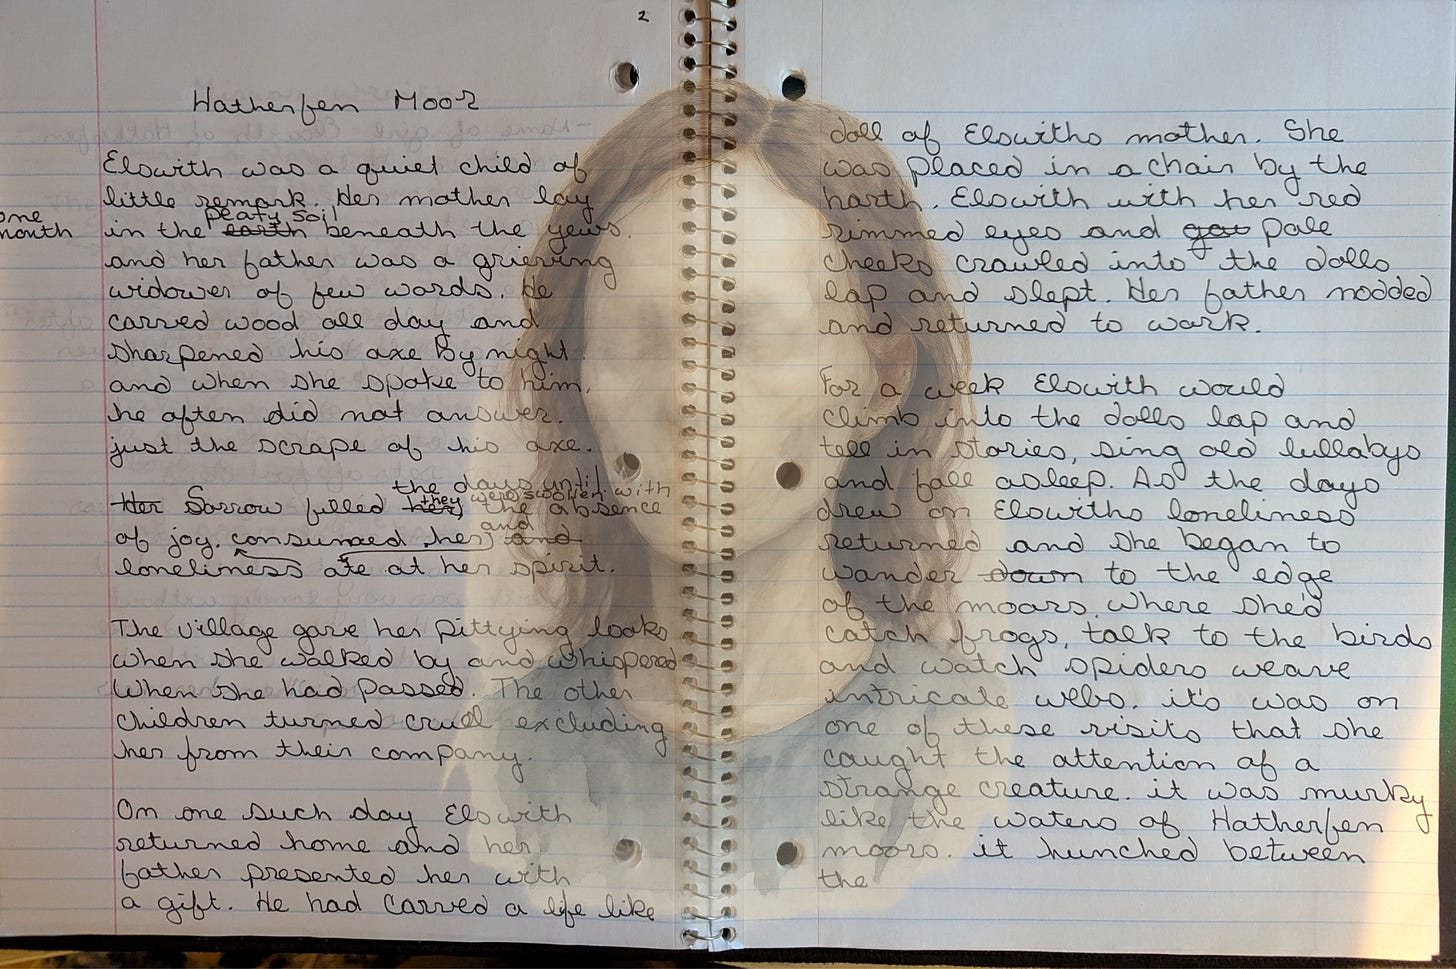 2
Hatherfen Moor
Elswith was a quiet child of
little remark. Her mother lay
one
month
peaty soil
in the earth beneath the yews.
and her father was a grieving
widower of few words. He
carved wood all day and
sharpened his axe by night.
and when she spoke to him,
he often did not answer.
just the scrape of his axe.
the days until
they were swollen with
Her Sorrow filled her, the absence
and
of joy. consumed her, and
loneliness ate at her spirit.
The village gave her pittying looks
when she walked by and whispered
when she had passed. The other
children turned cruel excluding
her from their company.
On one such day Elswith
returned home and her
father presented her with
a gift. He had carved a life like
doll of Elswiths mother. She
was placed in a chair by the
harth. Elswith with her red
rimmed eyes and pale
cheeks crawled into the dolls
lap and slept. Her father nodded
and returned to work.
For a week Elswith would
climb into the dolls lap and
tell in stories, sing old lullabys
and fall asleep. As the days
drew on Elswiths loneliness
returned and she began to
wander down to the edge
of the moors where she'd
catch frogs, talk to the birds
and watch spiders weave
intricate webs. it's was on
one of these visits that she
caught the attention of a
strange creature. it was murky
like the waters of Hatherfen
moors. it hunched between
the